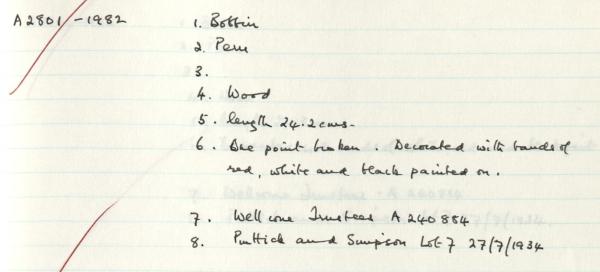 A2801 -1982 1. Bobbin
2. Peru
3.
4. Wood
5. length 24.2cms.
6. One point broken. Decorated with bands of
red, white and black painted on.
7. Wellcome Trustees A 240884
8. Puttick and Simpson Lot 7 27/7/1934